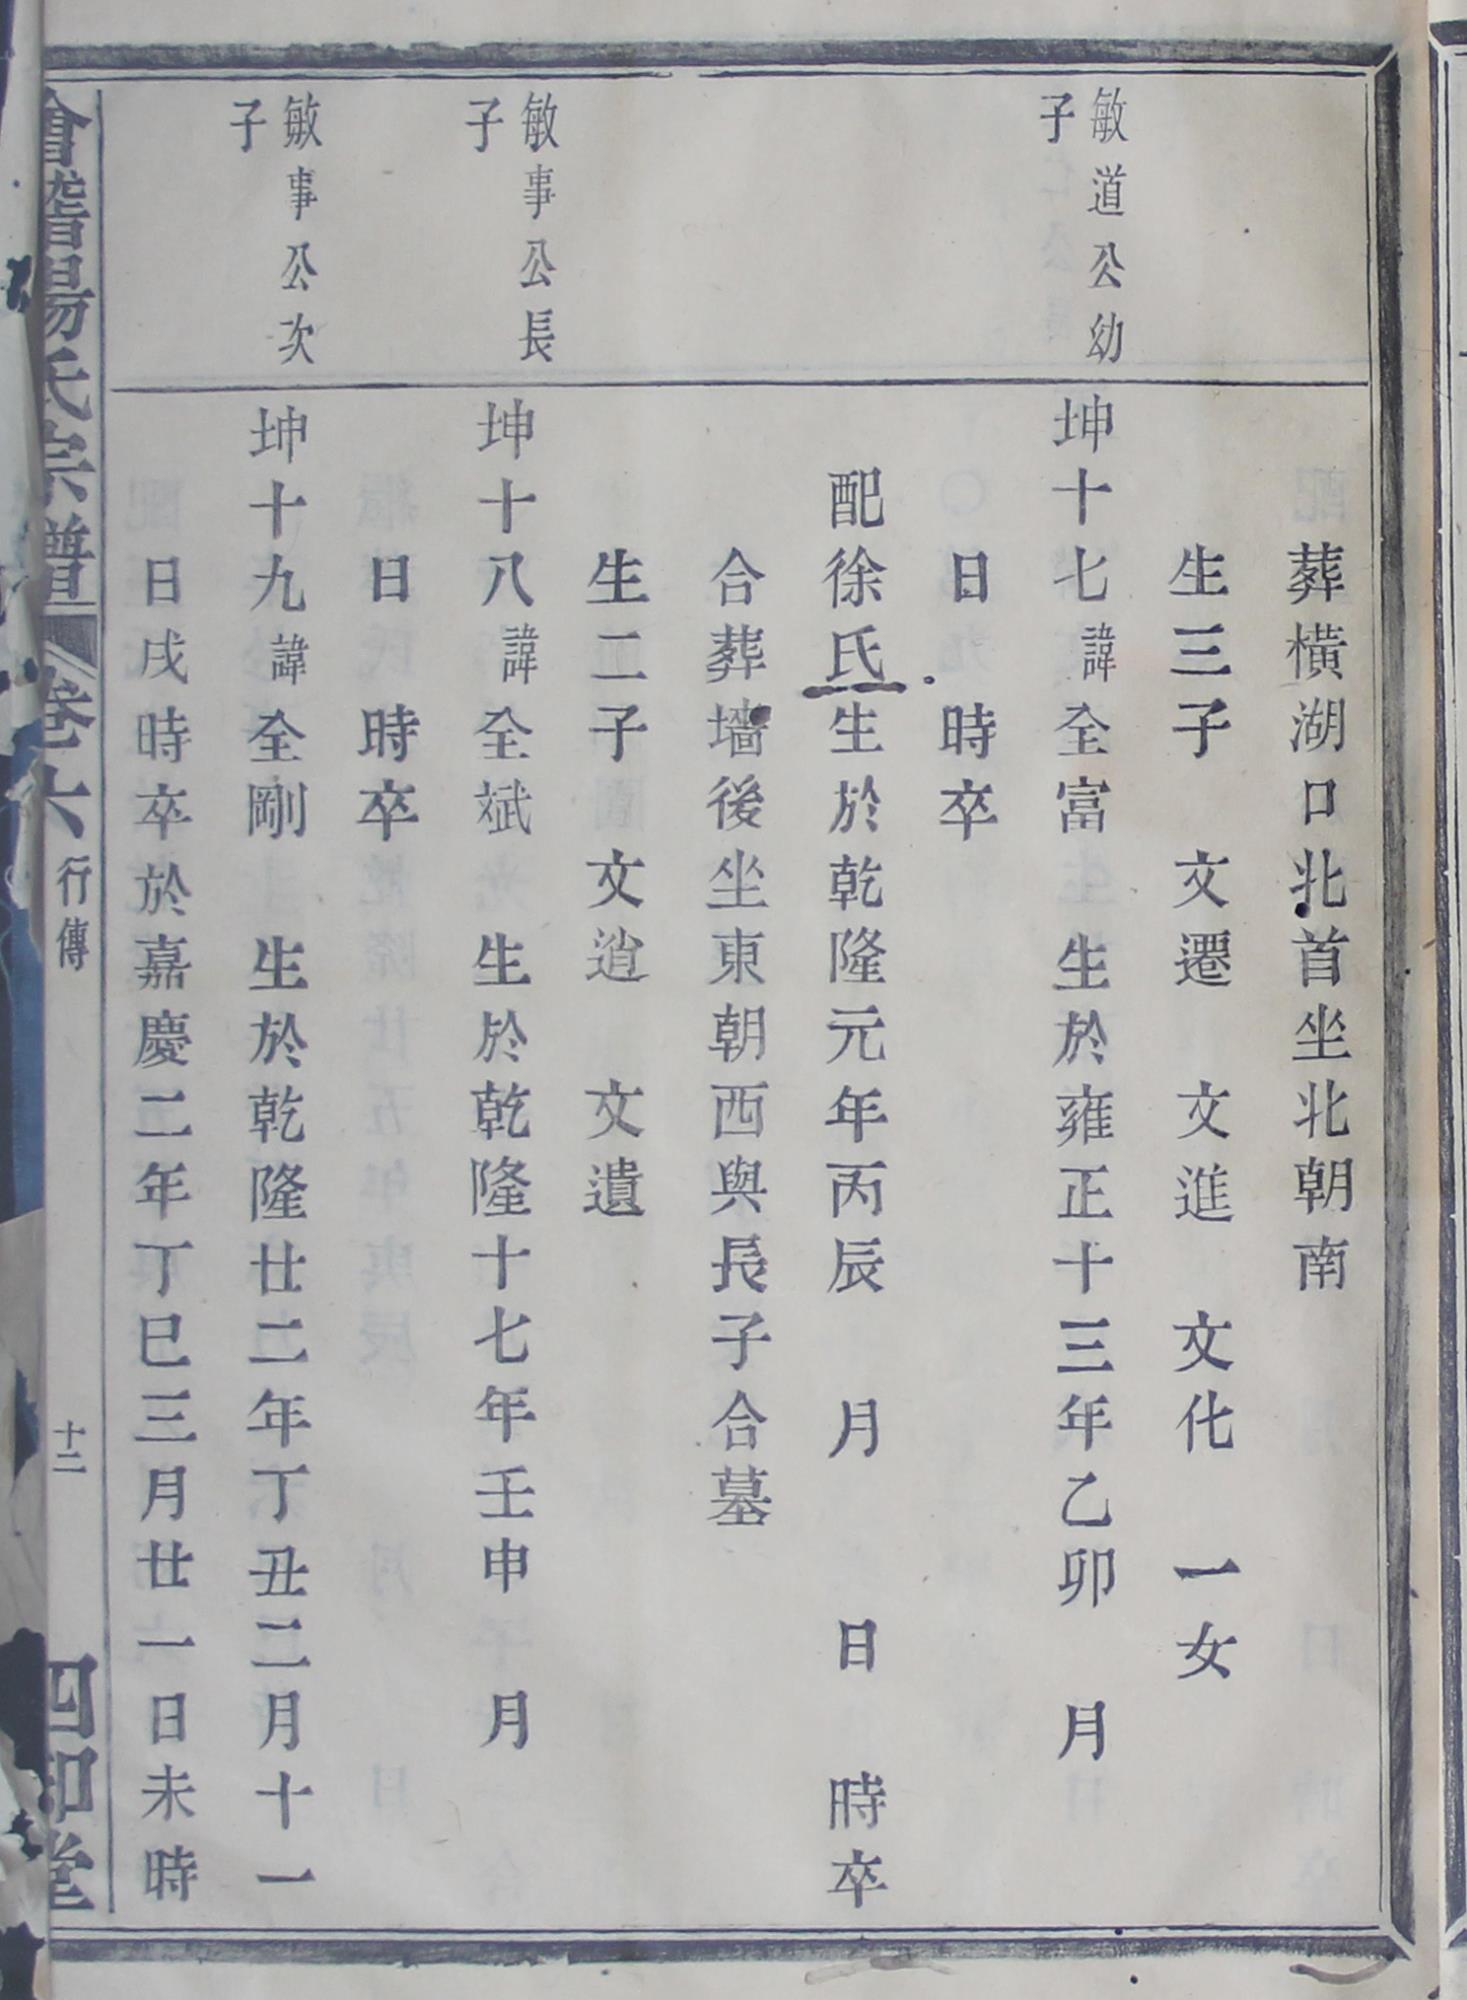 葬橫湖口北首坐北朝南
生三子　文遷　文進　文化　一女
敏道公幼
子
坤十七諱全富　生於雍正十三年乙卯　月
日　時卒
配徐氏生於乾隆元年丙辰　月　日　時卒
合葬墻後坐東朝西與長子合墓
生二子　文逍　文遺
敏事公長
子
坤十八諱全斌　生於乾隆十七年壬申　月
日　時卒
敏事公次
子
坤十九諱全剛　生於乾隆廿二年丁丑二月十一
日戌時卒於嘉慶二年丁巳三月廿一日未時
會稽楊氏宗譜　卷六　行傳　十二　四知堂